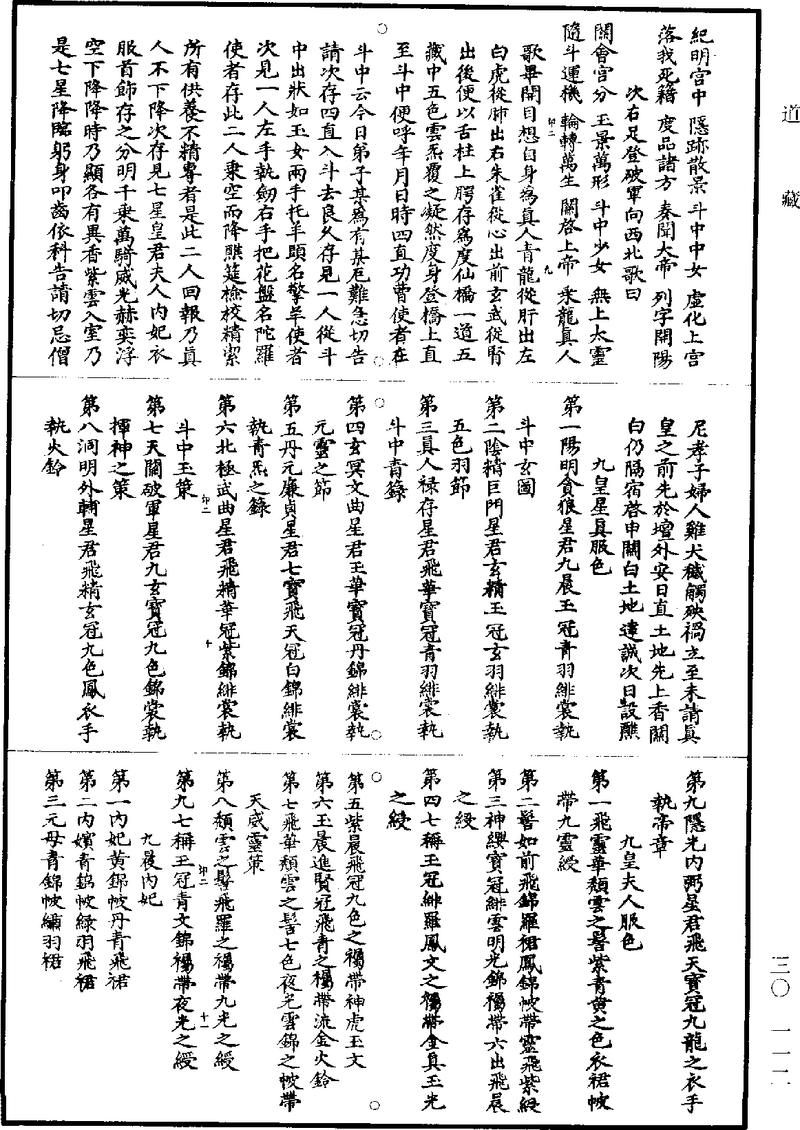 道藏
紀明宮中　隱跡散景　斗中中女　虛化上宮
落我死籍　度品諸方　奏聞大帝　列字開陽
次右足登破軍向西北歌曰
關會宮分　玉景萬形　斗中少女　無上太靈
隨斗運機　輪轉萬生　關啓上帝　乘龍真人
歌畢開目想自身為真人青龍從肝出左
白虎從肺出右朱雀從心出前玄武從腎
出後便以舌柱上腭存為度仙橋一道五
藏中五色雲炁覆之凝然度身登橋上直
至斗中便呼年月日時四直功曹使者在
斗中云今日弟子某為有某厄難急切告
請次存四直入斗去良久存見一人從斗
中出狀如玉女兩手托羊頭名擎羊使者
次見一人左手執劒右手把花盤名陀羅
使者存此二人乘空而降醮筵檢校精潔
所有供養不精專者是此二人回報乃真
人不下降次存見七星皇君夫人內妃衣
服首飾存之分明千乘萬騎威光赫奕浮
空下降降時乃顯各有異香紫雲入室乃
是七星降臨躬身叩齒依科告請切忌僧
尼孝子婦人雞犬穢觸殃禍立至未請真
皇之前先於壇外安日直土地先上香關
白仍隔宿啓申關白土地達誠次日設醮
九皇星真服色
第一陽明貪狼星君九晨玉冠青羽緋裳執
斗中玄圖
第二陰精巨門星君玄精玉冠玄羽緋裳執
五色羽節
第三真人祿存星君飛華寶冠青羽緋裳執
斗中青籙
第四玄冥文曲星君玉華寶冠丹錦緋裳執
元靈之節
第五丹元廉貞星君七寶飛天冠白錦緋裳
執青炁之錄
第六北極武曲星君飛精華冠紫錦緋裳執
斗中玉策
第七天關破軍星君九玄寶冠九色錦裳執
揮神之策
第八洞明外輔星君飛精玄冠九色鳳衣手
執火鈴
第九隱光內弼星君飛天寶冠九龍之衣手
執帝章
九皇夫人服色
第一飛靈華頹雲之髻紫青黃之色衣裙帔
帶九靈綬
第二髻如前飛錦羅裙鳳錦帔帶靈飛紫綬
第三神纓寶冠緋雲明光錦襡帶六出飛晨
之綬
第四七稱玉冠緋羅鳳文之襡帶金真玉光
之綬
第五紫晨飛冠九色之襡帶神虎玉文
第六玉晨進賢冠飛青之襡帶流金火鈴
第七飛華頹雲之髻七色夜光雲錦之帔帶
天威靈策
第八頹雲之髻飛羅之襡帶九光之綬
第九七稱玉冠青文錦襡帶夜光之綬
九晨內妃
第一內妃黃錦帔丹青飛裙
第二內嬪青錦帔綠羽飛裙
第三元母青錦帔繡羽裙
三〇　一一二